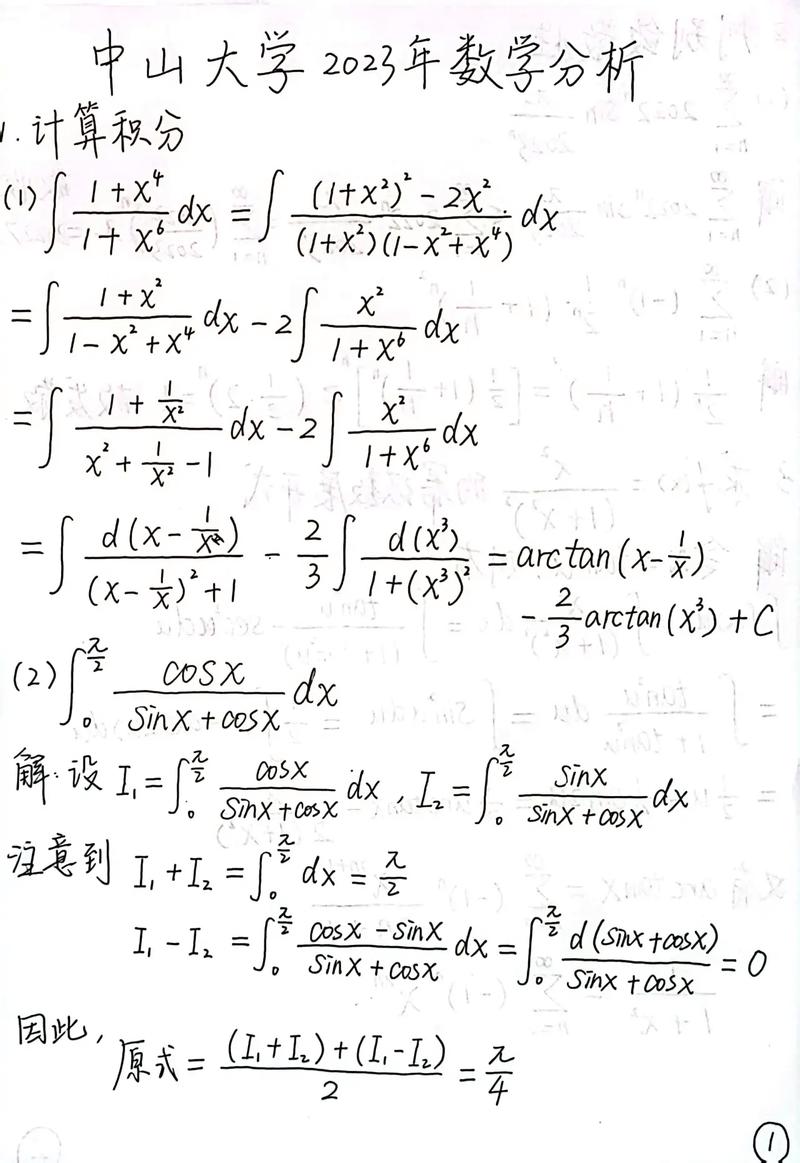 中山大学2023年数学分析
1.计算积分
(1) ∫ (1+x⁴)/(1+x⁶) dx = ∫ ((1+x²)²-2x²)/((1+x²)(1-x²+x⁴)) dx
= ∫ (1+x²)/(1-x²+x⁴) dx - 2∫ x²/(1+x⁶) dx
= ∫ (1+1/x²)/(x²+1/x²-1) dx - 2∫ x²/(1+x⁶) dx
= ∫ d(x-1/x)/((x-1/x)²+1) - 2/3 ∫ d(x³)/(1+(x³)²) = arctan(x-1/x)
- 2/3 arctan(x³) + C
(2) ∫₀^(π/2) cosx/(sinx+cosx) dx
解:设 I₁ = ∫₀^(π/2) cosx/(sinx+cosx) dx , I₂ = ∫₀^(π/2) sinx/(sinx+cosx) dx
注意到 I₁+I₂ = ∫₀^(π/2) dx = π/2
I₁-I₂ = ∫₀^(π/2) (cosx-sinx)/(sinx+cosx) dx = ∫₀^(π/2) d(sinx+cosx)/(sinx+cosx) = 0
因此,
原式 = ((I₁+I₂)+(I₁-I₂))/2 = π/4
①